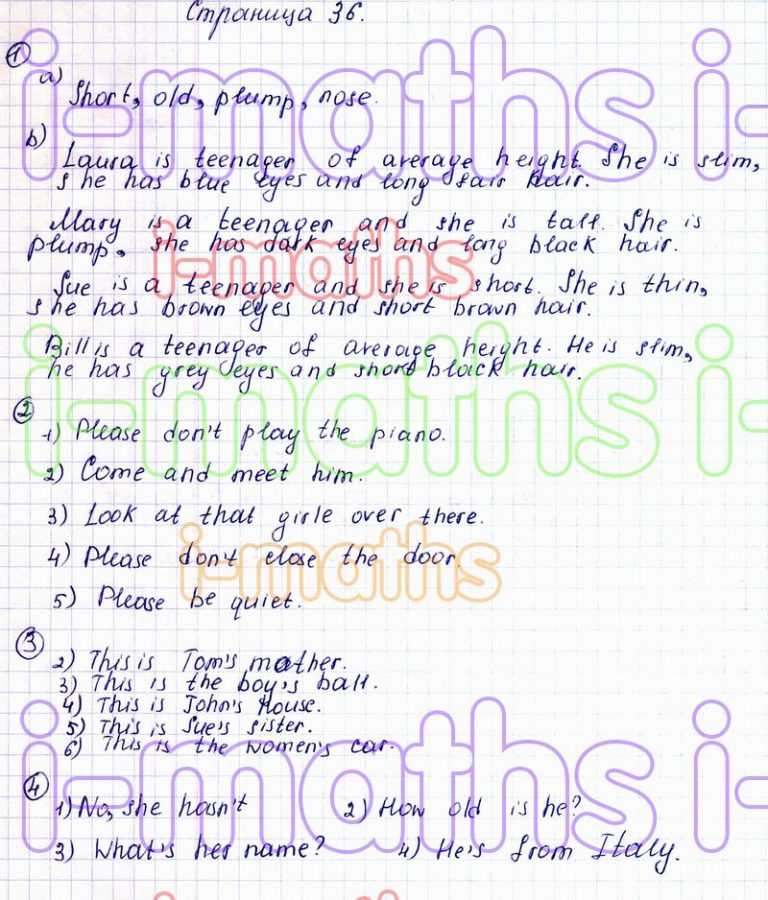 Страница 36.
1
a)
Short, old, plump, nose.
b)
Laura is teenager of average height. She is slim,
she has blue eyes and long fair hair.
Mary is a teenager and she is tall. She is
plump, she has dark eyes and long black hair.
Sue is a teenager and she is short. She is thin,
she has brown eyes and short brown hair.
Bill is a teenager of average height. He is slim,
he has grey eyes and short black hair.
2
1) Please don't play the piano.
2) Come and meet him.
3) Look at that girle over there.
4) Please don't close the door.
5) Please be quiet.
3
2) This is Tom's mather.
3) This is the boy's ball.
4) This is John's House.
5) This is Sue's sister.
6) This is the women's car.
4
1) No, she hasn't 2) How old is he?
3) What's her name? 4) He's from Italy.
i-maths i-
i-maths
i-maths i-
i-maths
i-maths i-